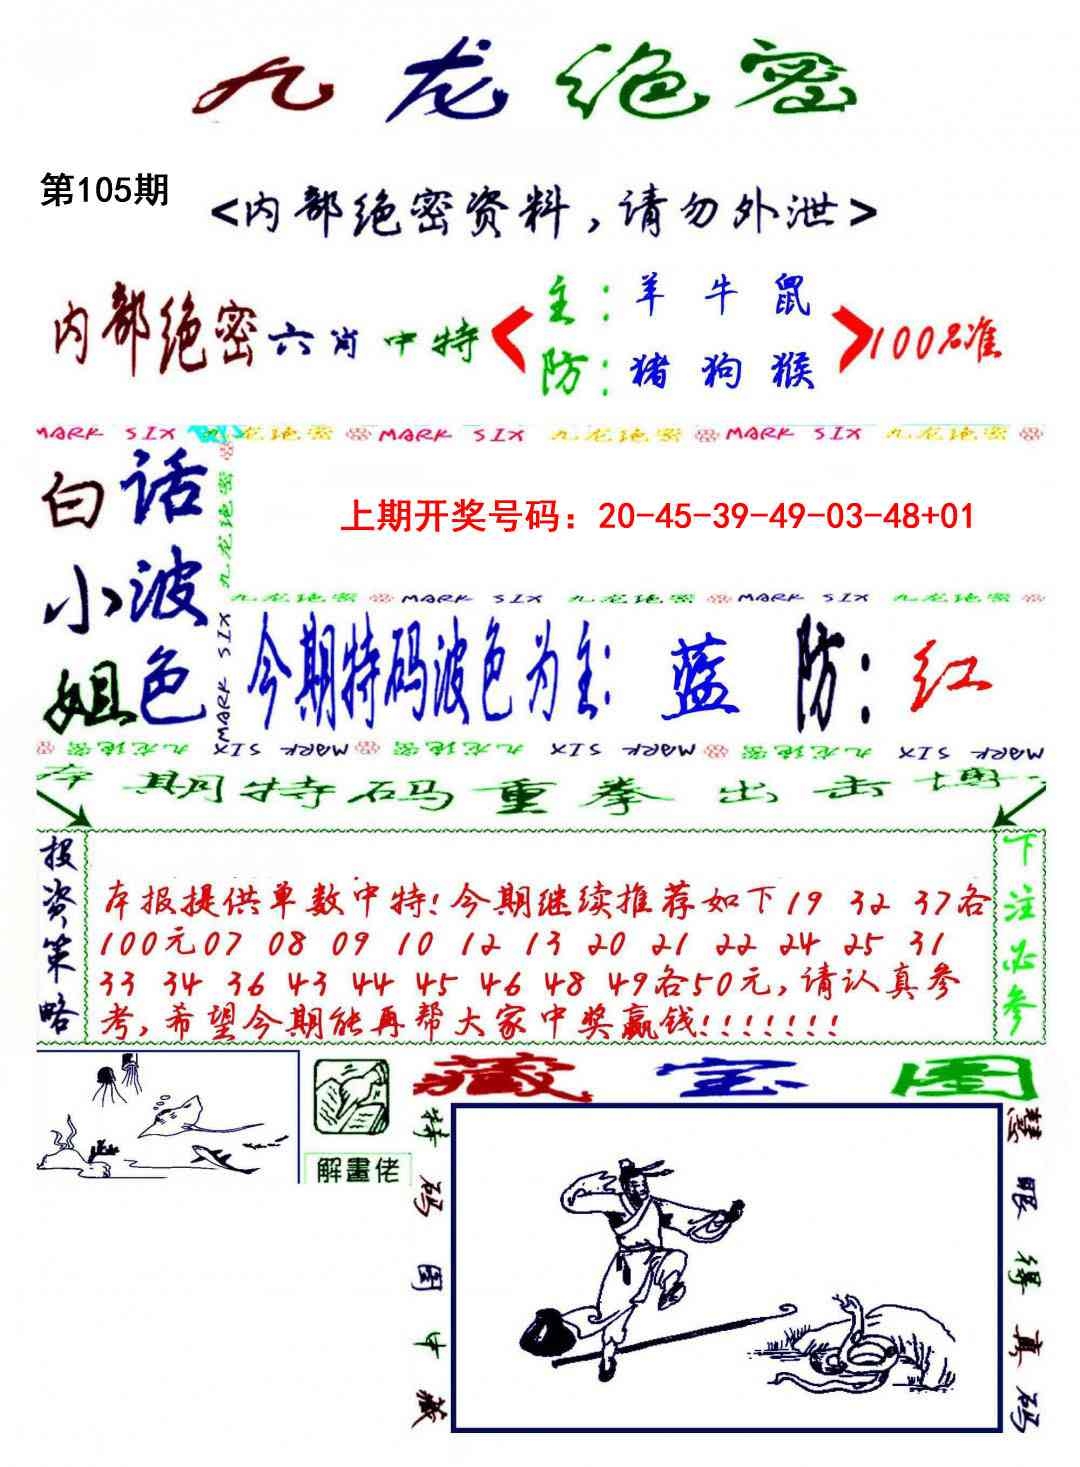 九龙绝密
第105期
<内部绝密资料,请勿外泄>
内部绝密六肖中特
主:羊 牛 鼠
防:猪 狗 猴
100%准
MARK SIX 九龙绝密 MARK SIX 九龙绝密 MARK SIX 九龙绝密
白小姐
话波色
九龙绝密 MARK SIX
上期开奖号码：20-45-39-49-03-48+01
九龙绝密 MARK SIX 九龙绝密 MARK SIX 九龙绝密
今期特码波色为主:蓝 防:红
九龙绝密 MARK SIX 九龙绝密 九龙绝密 MARK SIX 九龙绝密 MARK SIX
本期特码重拳出击博
投资策略
本报提供单数中特!今期继续推荐如下19 32 37各
100元07 08 09 10 12 13 20 21 22 24 25 31
33 34 36 43 44 45 46 48 49各50元,请认真参
考,希望今期能再帮大家中奖赢钱!!!!!!!
下注必参
解畫佬
藏宝图
特码图中藏
慧眼得真码